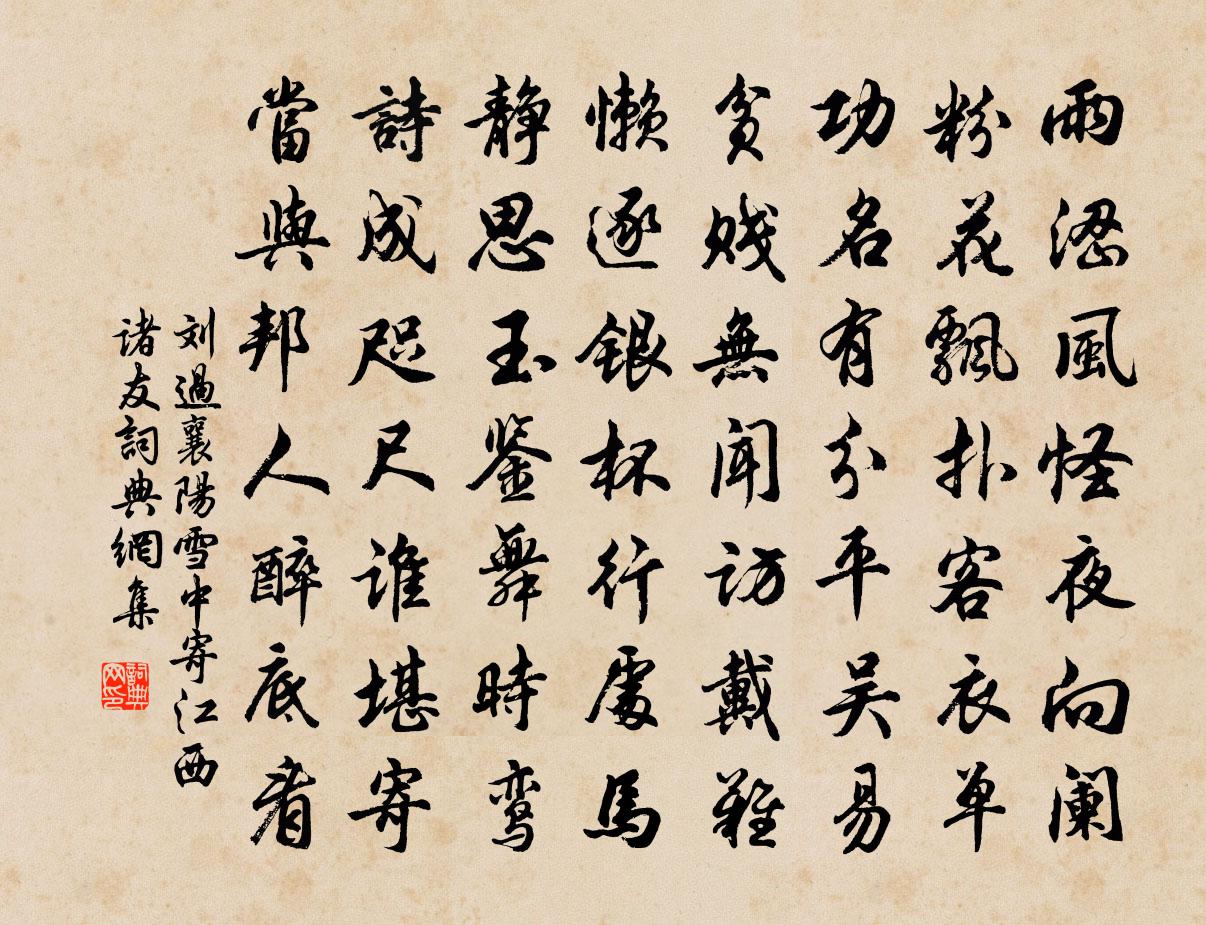 雨澀風怪夜向闌
粉花飄扑客衣单
功名有分平吴易
貧贱無闻访戴難
懒逐银杯行處馬
静思玉鉴舞時鸾
詩成咫尺谁堪寄
當與邦人醉底看
刘過襄陽雪中寄江西
诸友詞典網集
詞典网印